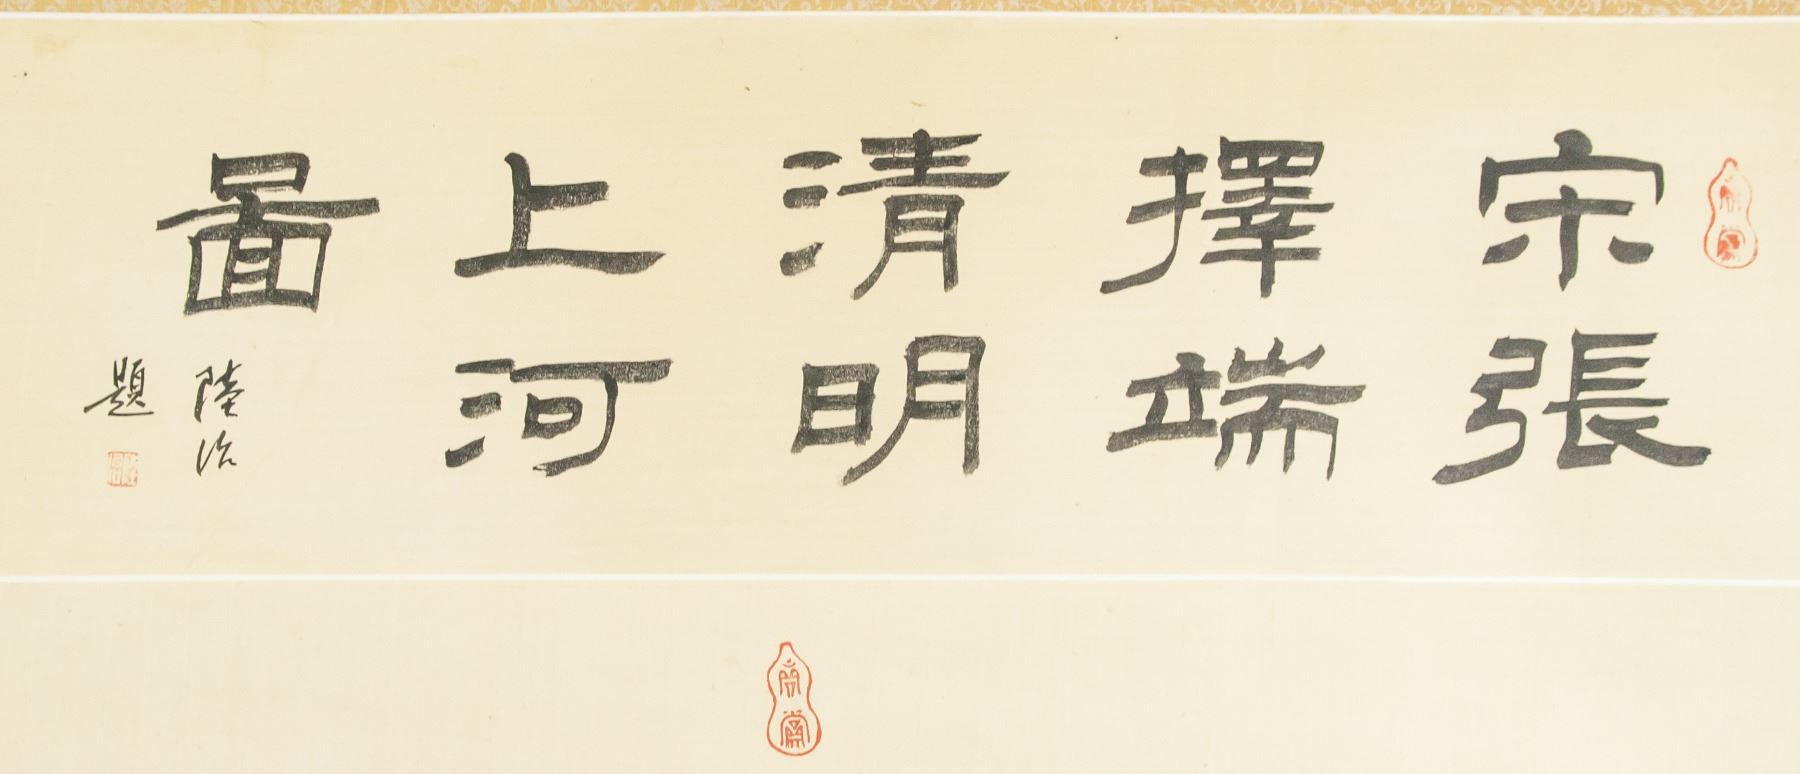 宋張
擇端
清明
上河
圖
陸治
題